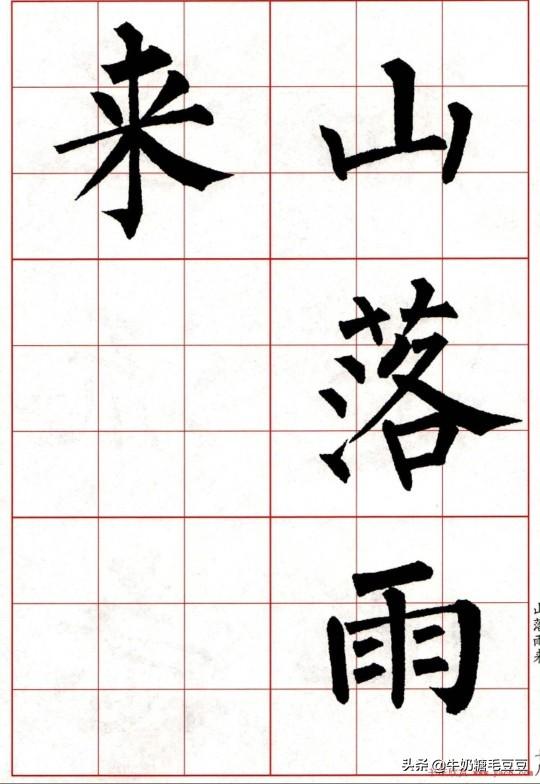 山落雨
来
山落雨来
头条 @牛奶糖毛豆豆